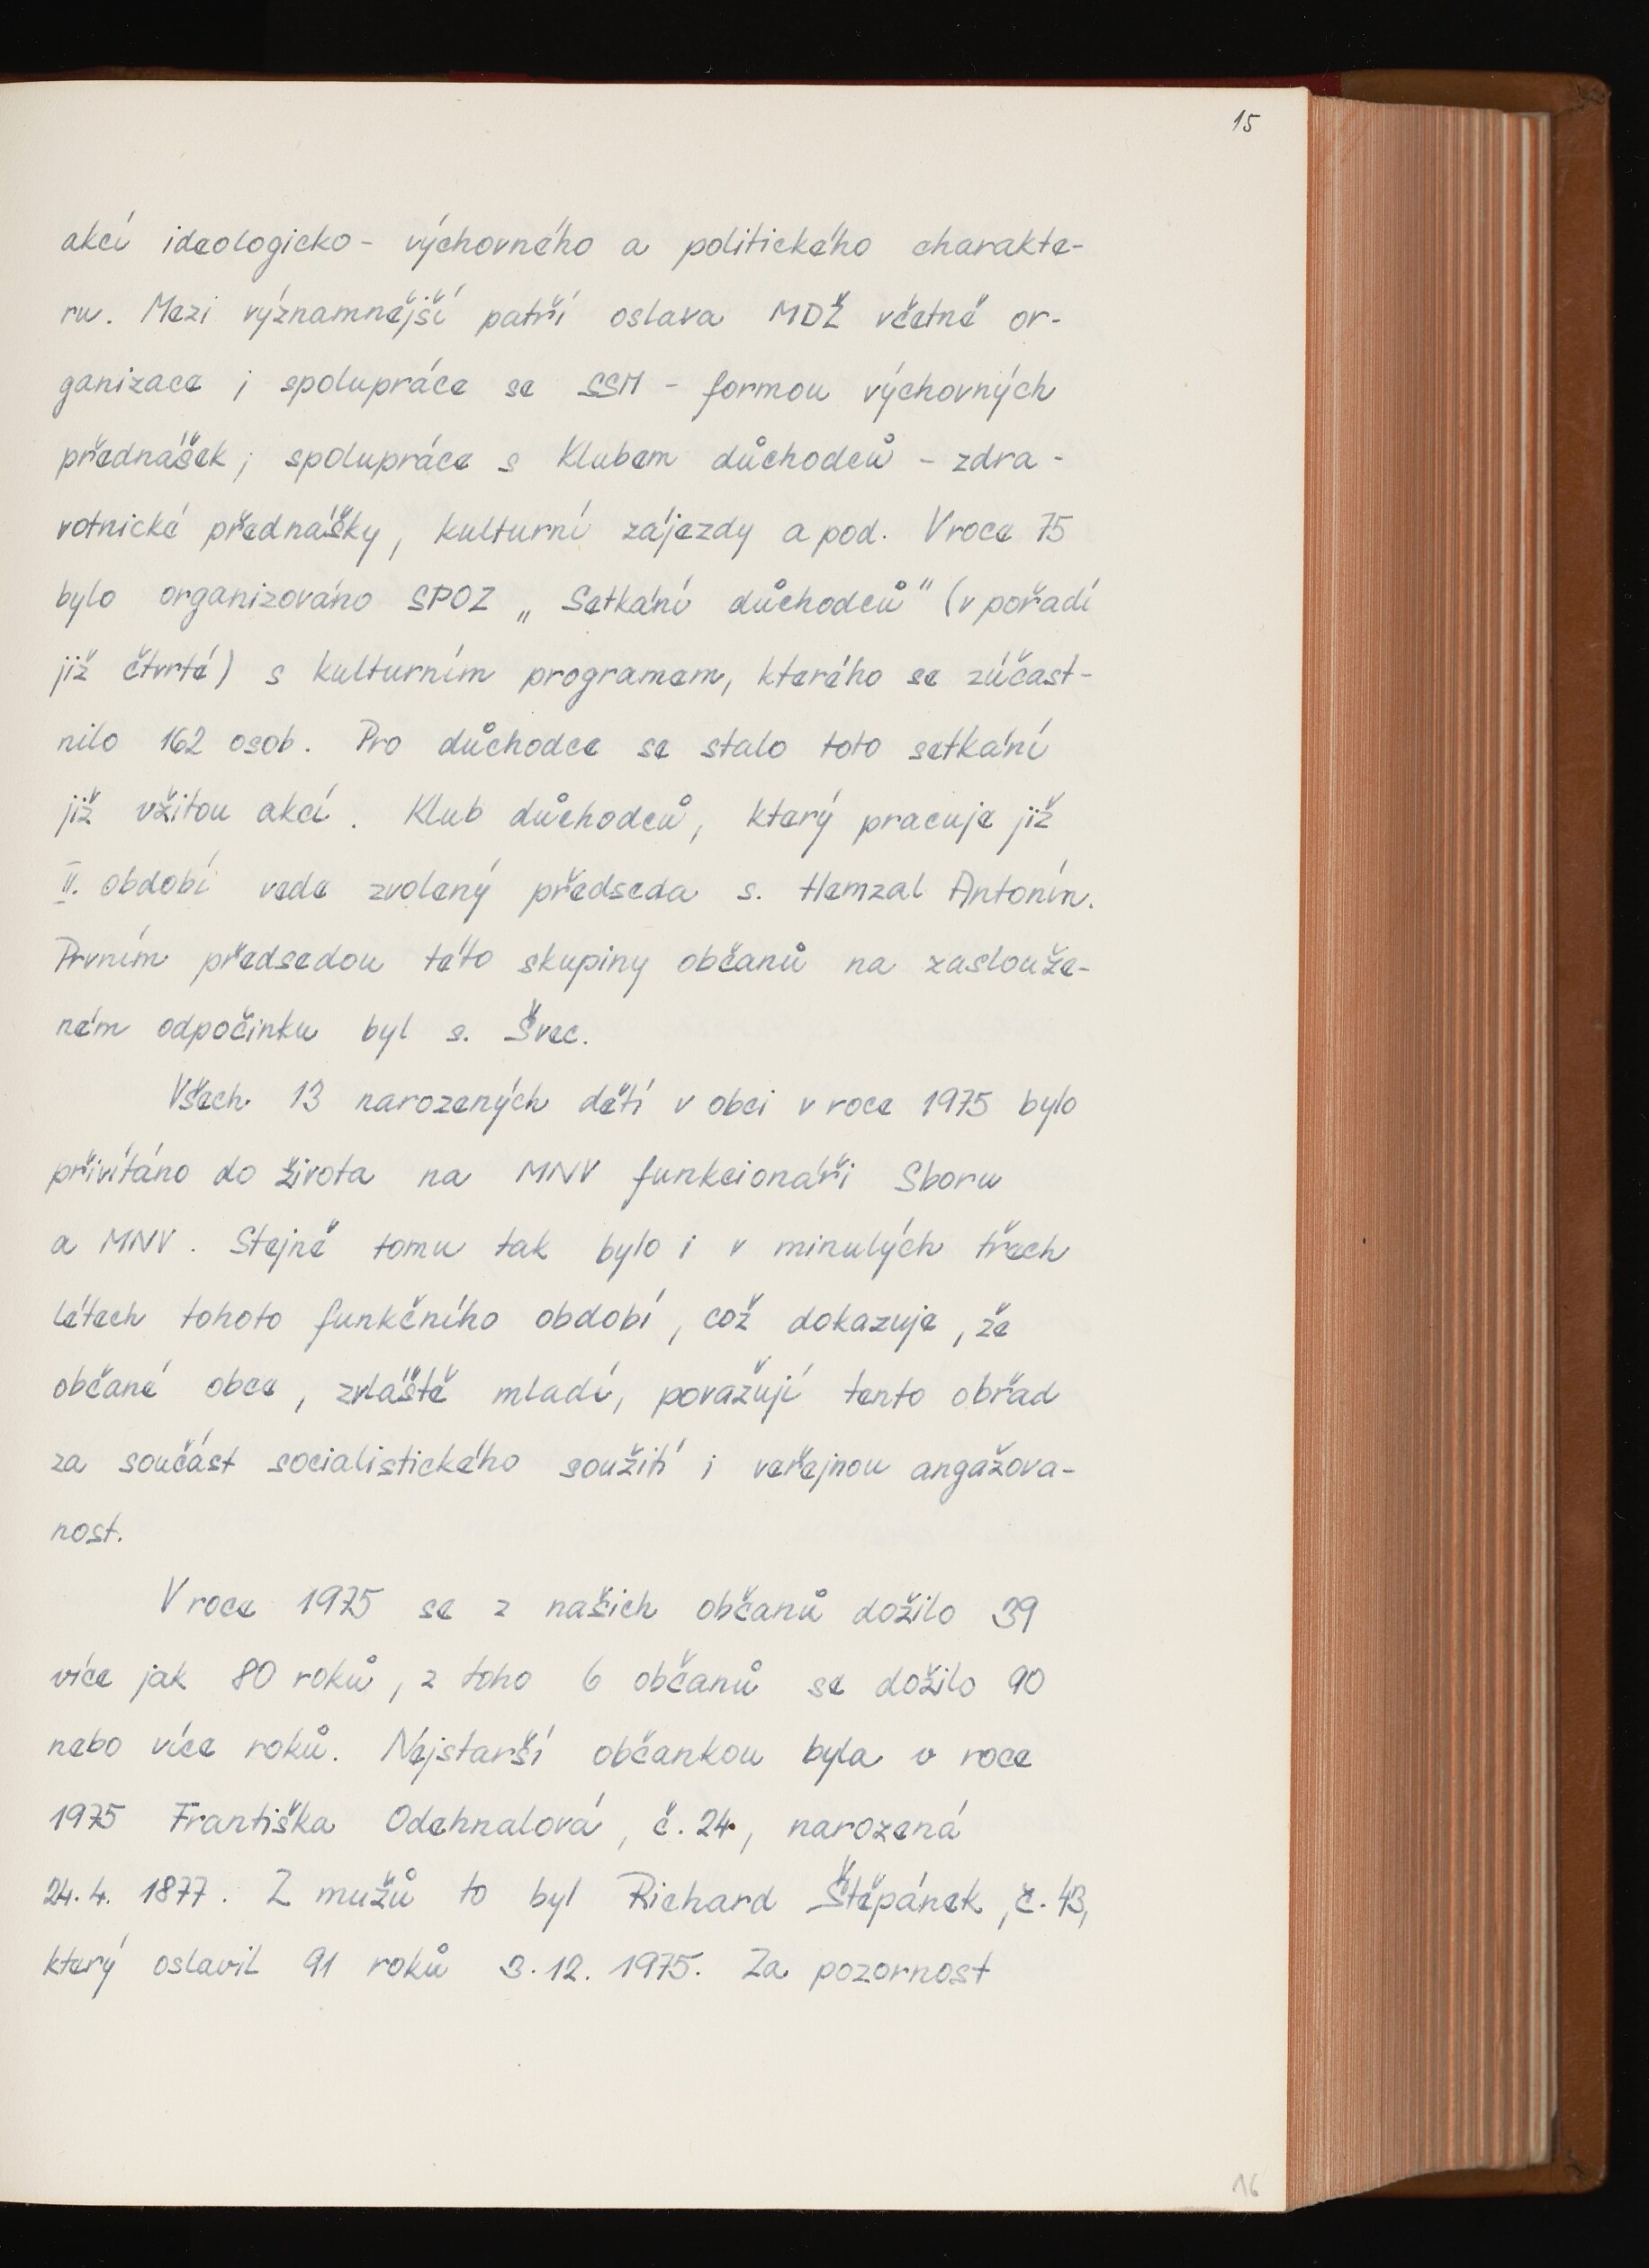 15
akcí ideologicko - výchovného a politického charakte-
ru. Mezi významnější patří oslava MDŽ včetně or-
ganizace ; spolupráce se SSM - formou výchovných
přednášek ; spolupráce s Klubem důchodců - zdra-
votnické přednášky, kulturní zájezdy a pod. V roce 75
bylo organizováno SPOZ „Setkání důchodců" (v pořadí
již čtvrté) s kulturním programem, kterého se zúčast-
nilo 162 osob. Pro důchodce se stalo toto setkání
již vžitou akcí. Klub důchodců, který pracuje již
II. období vede zvolený předseda s. Hemzal Antonín.
Prvním předsedou této skupiny občanů na zaslouže-
ném odpočinku byl s. Švec.
Všech 13 narozených dětí v obci v roce 1975 bylo
přivítáno do života na MNV funkcionáři Sboru
a MNV. Stejně tomu tak bylo i v minulých třech
létech tohoto funkčního období, což dokazuje, že
občané obce, zvláště mladí, považují tento obřad
za součást socialistického soužití i veřejnou angažova-
nost.
V roce 1975 se z našich občanů dožilo 39
více jak 80 roků, z toho 6 občanů se dožilo 90
nebo více roků. Nejstarší občankou byla v roce
1975 Františka Odehnalová, č. 24, narozená
24. 4. 1877. Z mužů to byl Richard Štěpánek, č. 43,
který oslavil 91 roků 3. 12. 1975. Za pozornost
16